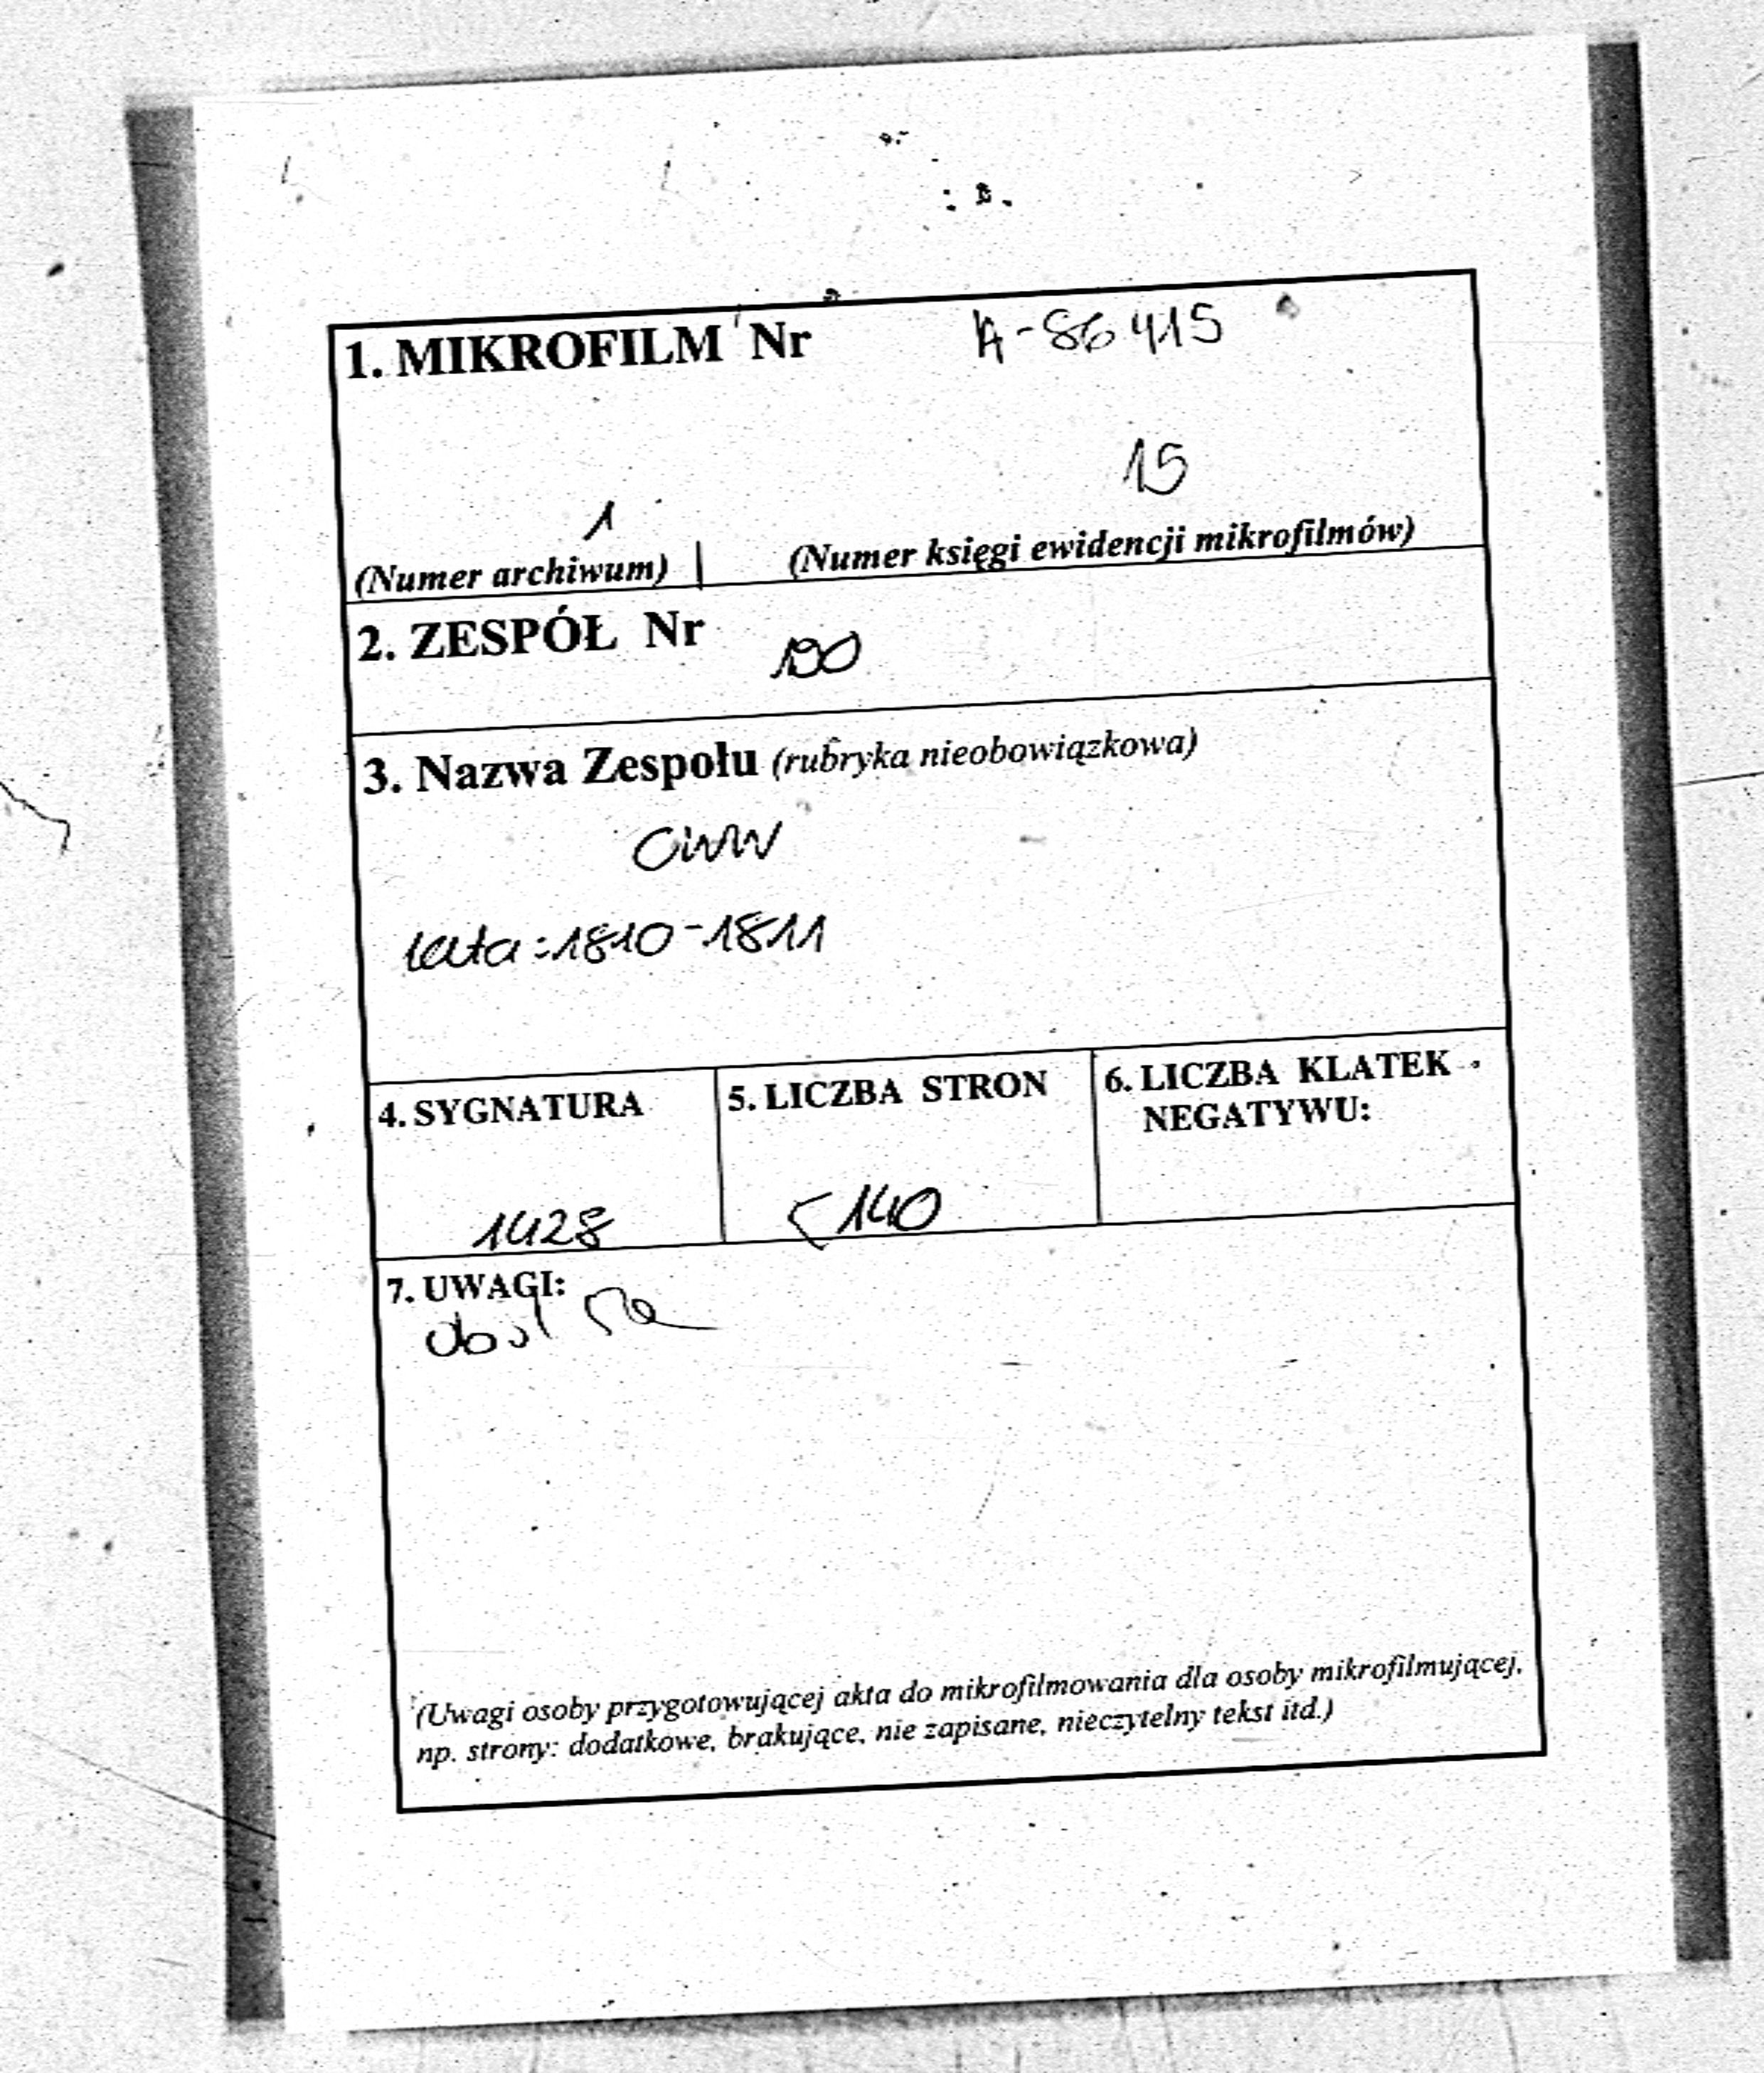 1. MIKROFILM Nr A-86415
15
1
(Numer archiwum) | (Numer księgi ewidencji mikrofilmów)
2. ZESPÓŁ Nr
3. Nazwa Zespołu (rubryka nieobowiązkowa)
CWW
lata: 1810-1811
4. SYGNATURA
5. LICZBA STRON
6. LICZBA KLATEK
NEGATYWU:
1428
140
7. UWAGI:
(Uwagi osoby przygotowującej akta do mikrofilmowania dla osoby mikrofilmującej,
np. strony: dodatkowe, brakujące, nie zapisane, nieczytelny tekst itd.)